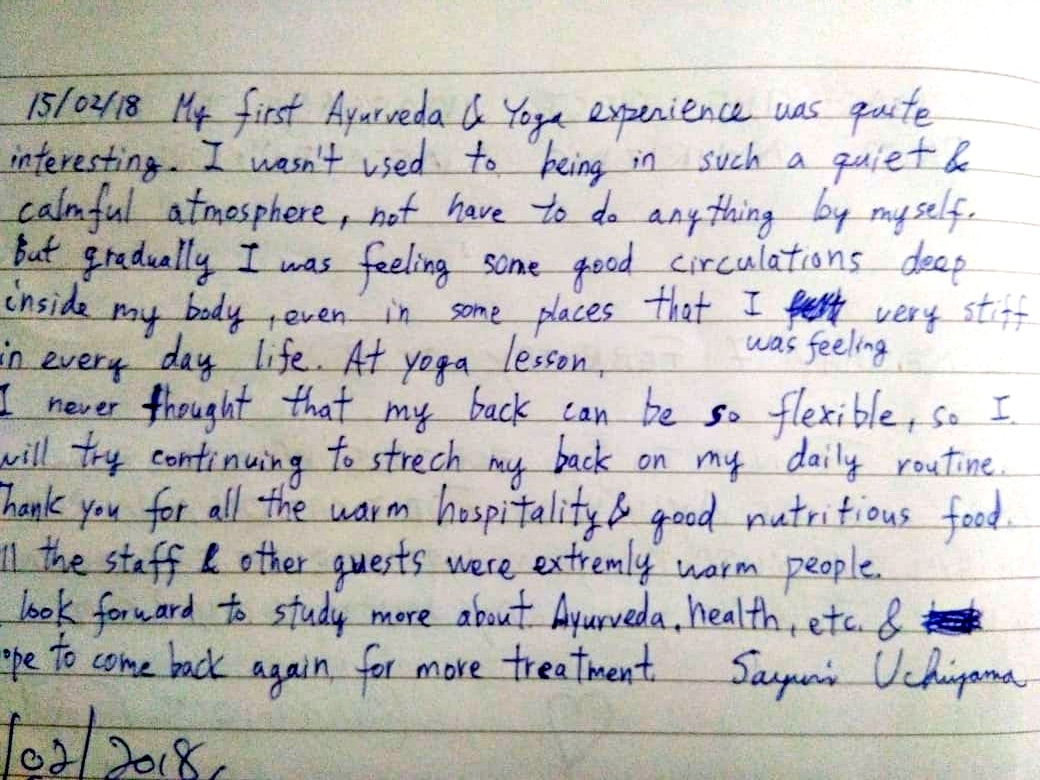 15/02/18 My first Ayurveda & Yoga experience was quite
interesting. I wasn't used to being in such a quiet &
calmful atmosphere, not have to do anything by myself.
But gradually I was feeling some good circulations deep
inside my body, even in some places that I very stiff
was feeling
in every day life. At yoga lesson,
I never thought that my back can be so flexible, so I
will try continuing to strech my back on my daily routine.
Thank you for all the warm hospitality & good nutritious food.
ll the staff & other guests were extremly warm people.
look forward to study more about Ayurveda, health, etc. &
ope to come back again for more treatment. Sayuri Uchiyama
/02/2018,